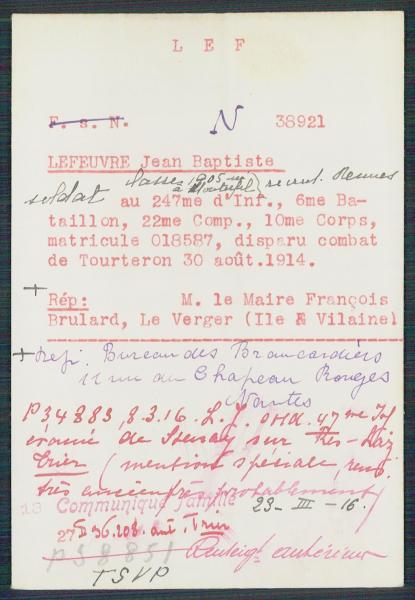 L E F
F. s. N.
N
38921
LEFEUVRE Jean Baptiste
soldat classe 1905 recrut. Rennes
au 247me d'Inf., 6me Ba-
taillon, 22me Comp., 10me Corps,
matricule 018587, disparu combat
de Tourteron 30 août.1914.
Rép: M. le Maire François
Brulard, Le Verger (Ile & Vilaine)
Bureau des Brancardiers
11 rue du Chapeau Rouges
Nantes
P34883, 8.3.16.
de Stenay sur
Trier (mention spéciale, rens.
très ancienne, probablement)
Communiqué famille 23-III-16.
27 36.208 Trier
P 38851 Renseigt antérieur
TSVP